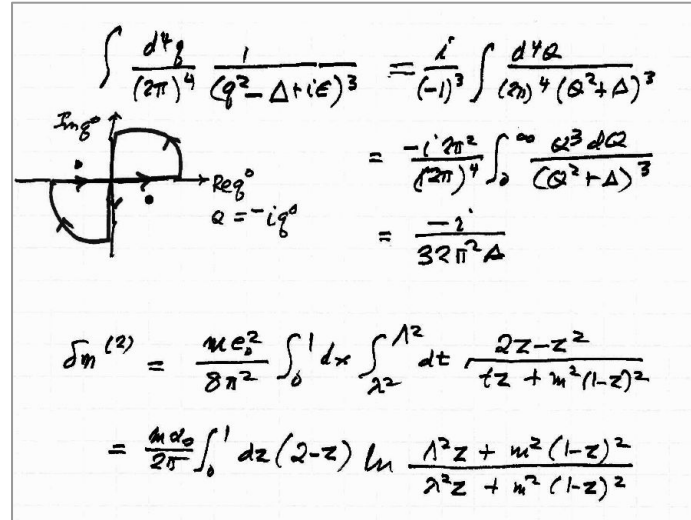 ∫ d⁴q/(2π)⁴ 1/(q² − Δ + iε)³ = i/(−1)³ ∫ d⁴Q/((2π)⁴ (Q² + Δ)³
Im q⁰
= −i 2π²/(2π)⁴ ∫₀^∞ Q³ dQ/(Q² + Δ)³
Re q⁰
Q = −i q⁰
= −i/(32π² Δ)
δm⁽²⁾ = m e₀²/(8π²) ∫₀¹ dx ∫_{λ²}^{Λ²} dt (2z − z²)/(tz + m²(1−z)²)
= m α₀/(2π) ∫₀¹ dz (2−z) ln (Λ²z + m²(1−z)²)/(λ²z + m²(1−z)²)